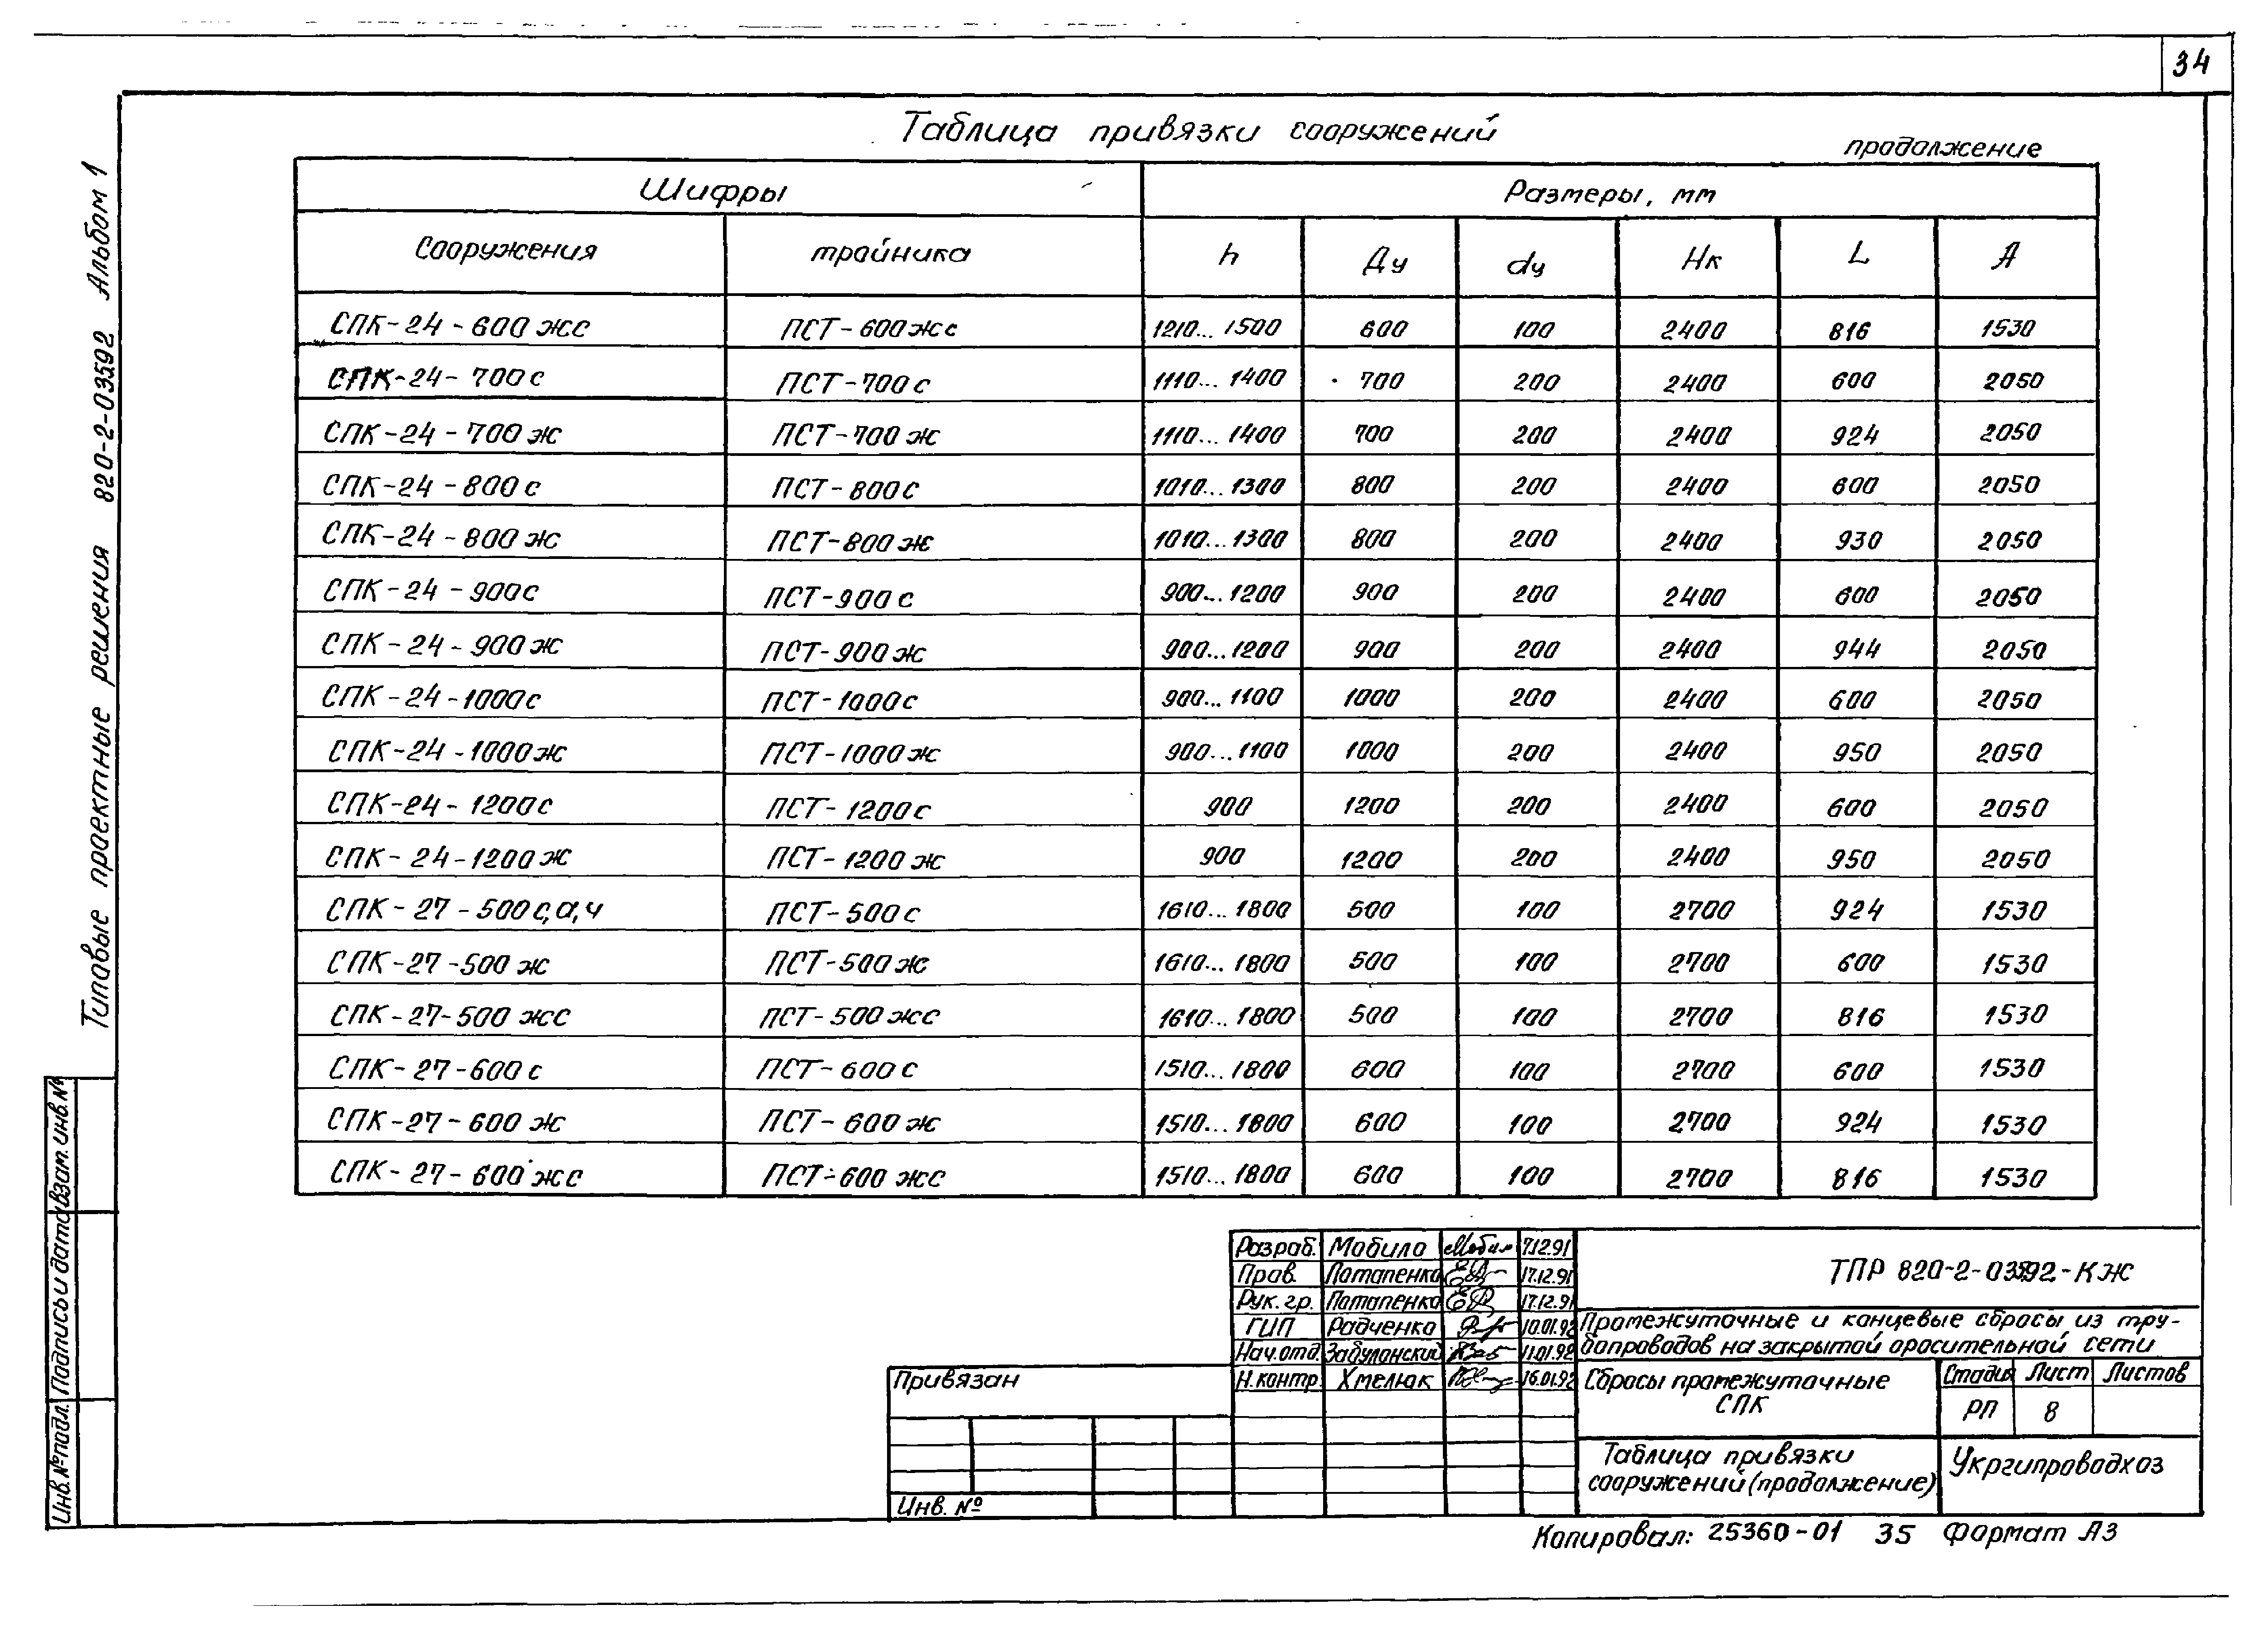 34
Таблица привязки сооружений
продолжение
Типовые проектные решения 820-2-03592 Альбом 1
Шифры Размеры, мм
Сооружения тройника h Ду dу Нк L А
СПК-24-600жс ПСТ-600жс 1210...1500 600 100 2400 816 1530
СПК-24-700с ПСТ-700с 1110...1400 700 200 2400 600 2050
СПК-24-700ж ПСТ-700ж 1110...1400 700 200 2400 924 2050
СПК-24-800с ПСТ-800с 1010...1300 800 200 2400 600 2050
СПК-24-800ж ПСТ-800ж 1010...1300 800 200 2400 930 2050
СПК-24-900с ПСТ-900с 900...1200 900 200 2400 600 2050
СПК-24-900ж ПСТ-900ж 900...1200 900 200 2400 944 2050
СПК-24-1000с ПСТ-1000с 900...1100 1000 200 2400 600 2050
СПК-24-1000ж ПСТ-1000ж 900...1100 1000 200 2400 950 2050
СПК-24-1200с ПСТ-1200с 900 1200 200 2400 600 2050
СПК-24-1200ж ПСТ-1200ж 900 1200 200 2400 950 2050
СПК-27-500с,а,ч ПСТ-500с 1610...1800 500 100 2700 924 1530
СПК-27-500ж ПСТ-500ж 1610...1800 500 100 2700 600 1530
СПК-27-500жс ПСТ-500жс 1610...1800 500 100 2700 816 1530
СПК-27-600с ПСТ-600с 1510...1800 600 100 2700 600 1530
СПК-27-600ж ПСТ-600ж 1510...1800 600 100 2700 924 1530
СПК-27-600жс ПСТ-600жс 1510...1800 600 100 2700 816 1530
Инв.№подл. Подпись и дата Взам.инв.№
Разраб. Мобило 7.12.91
Пров. Потапенко 17.12.91
Рук.гр. Потапенко 17.12.91
ГИП Радченко 10.01.92
Нач.отд. Забуланский 11.01.92
Н.контр. Хмелюк 16.01.92
Привязан
Инв. №
ТПР 820-2-03592-КЖ
Промежуточные и концевые сбросы из тру-
бопроводов на закрытой оросительной сети
Сбросы промежуточные
СПК
Стадия Лист Листов
РП 8
Таблица привязки
сооружений (продолжение)
Укргипроводхоз
Копировал: 25360-01 35 Формат А3